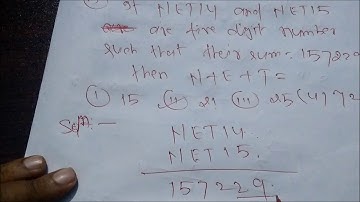 If NET14 and NET15
are five digit number
such that their sum = 157229
then N+E+T=
(i) 15 (ii) 21 (iii) 25 (4) 72
Solⁿ:—
NET14
NET15.
157229.